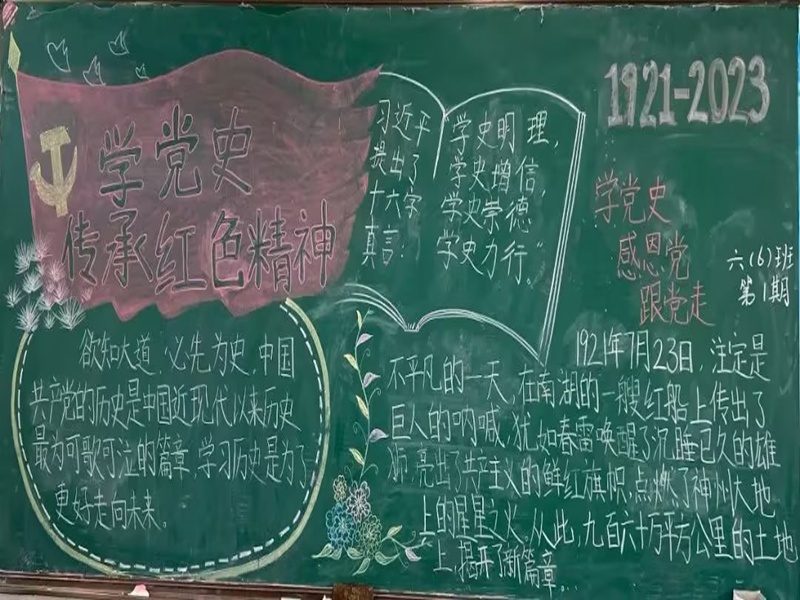 学党史
传承红色精神
习近平
提出了
十六字
真言：
学史明理，
学史增信，
学史崇德
学史力行。”
1921-2023
学党史
感恩党
跟党走
六(6)班
第1期
欲知大道，必先为史，中国
共产党的历史是中国近现代以来历史
最为可歌可泣的篇章，学习历史是为了
更好走向未来。
1921年7月23日，注定是
不平凡的一天，在南湖的一艘红船上传出了
巨人的呐喊，犹如春雷唤醒了沉睡已久的雄
狮，亮出了共产主义的鲜红旗帜，点燃了神州大地
上的星星之火，从此，九百六十万平方公里的土地
上，揭开了新篇章…